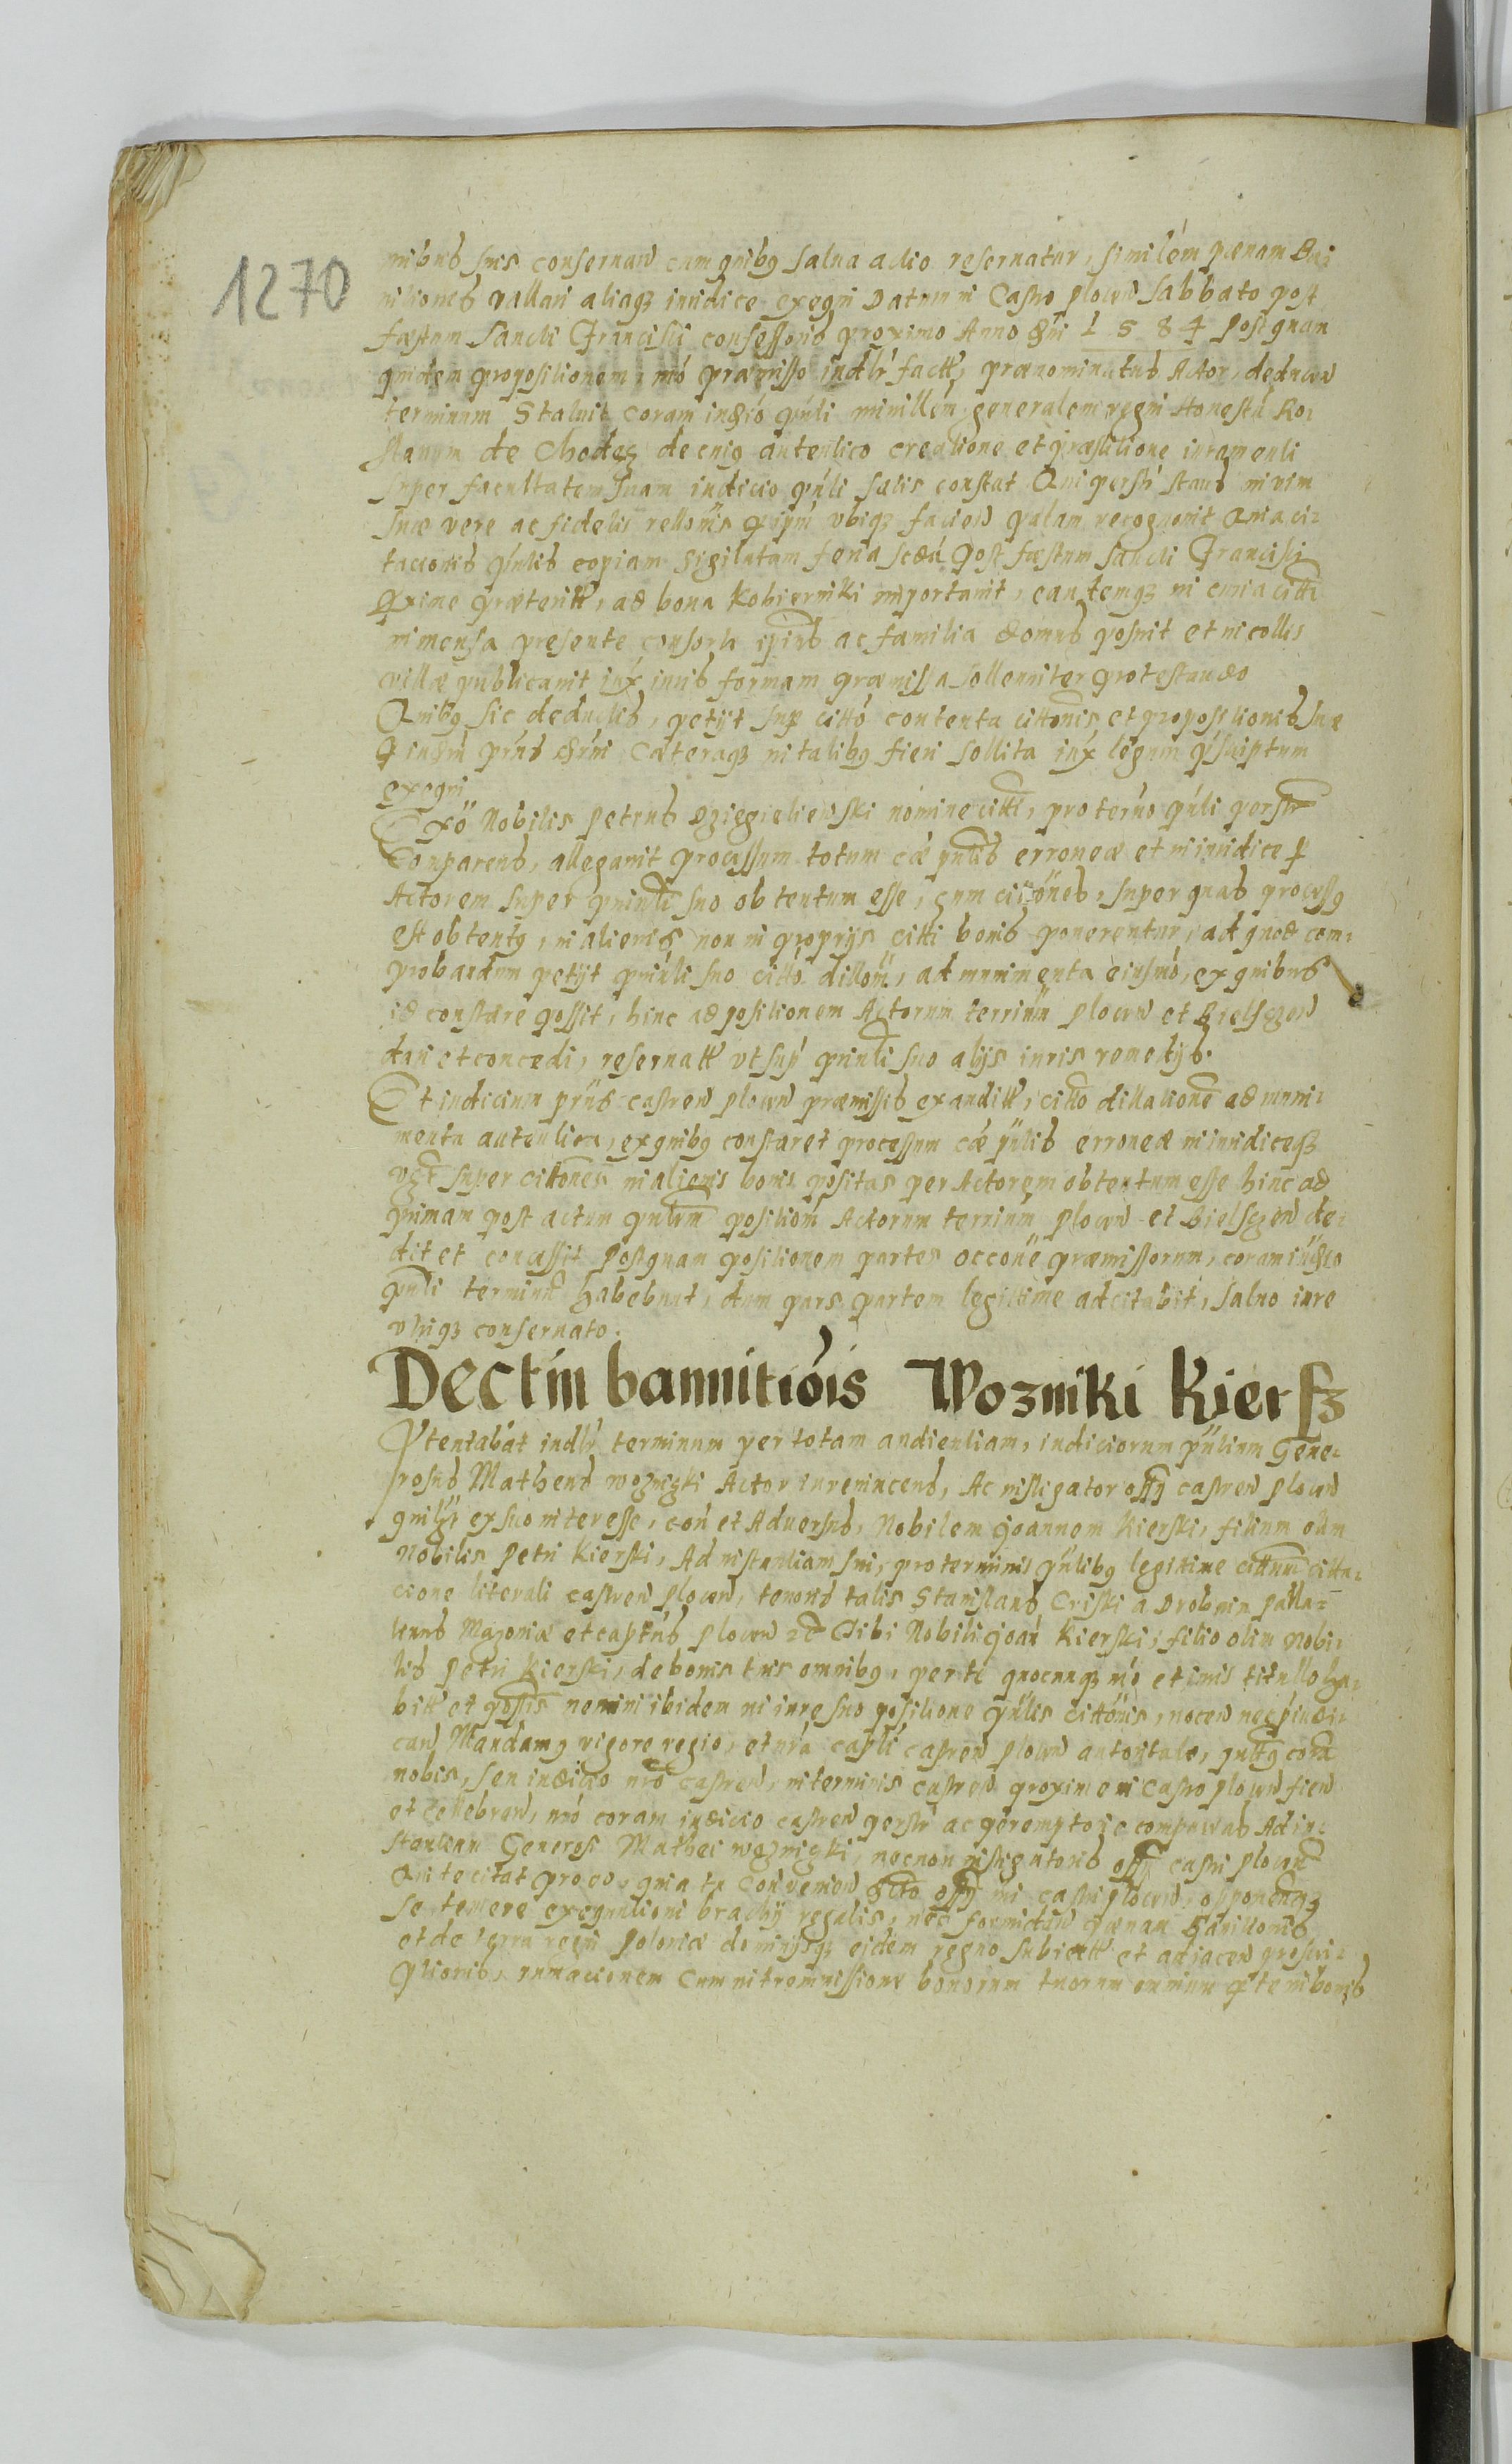 1270
nibus suis conseruan cum quibq salua actio reseruatur, similem pœnam Ban
nitionis vallari aliaq iuridice exequi Datum in Castro plocen sabbato post
fæstum Sancti Francisci confessoris proximo Anno dni 1584 Postquam
quidem propositionem, mó præmisso indlr fact, prænominatus Actor, deducen
terminum Statuit coram indió pnti ministlem generalem regni Honestu Ro
stanum de Chodecz de cuiq autentico creatione et præstitione iuramenti
super facultatem suam iudicio pnti satis constat Qui perstr stans in vim
suæ vere ac fidelis rellonis ipm vbiq facien palam recognouit Quia ci
tacionis pntis copiam sigilatam feria scda post fæstum Sancti Francisci
pxime præterit, ad bona Kobierniki importauit, eandemq in curia citti
in mensa presente consorte ipius ac familia domus posuit et incollis
villæ publicauit iux iuris formam præmissa sollenniter protestando
Quibq sic deductis, petijt sup citto contenta cittonis, et propositionis suæ
p indm pns dcrni Cæteraq in talibq fieri sollita iux legum pscriptum
exequi
Exo Nobilis Petrus Dziegieliewski nomine citti, pro terno pnti perstr
Comparens, allegauit processum totum cæ pntis erroneæ et iniuridice p
Actorem super prinli suo obtentum esse, cum cittones, super quas processq
est obtentq, in alienis non in proprijs citti bonis ponerentur, ad quod com
probandum petijt prinli suo citto dillom, ad munimenta eiusmo, ex quibus
id constare possit, hinc ad positionem Actorum terrium plocen et Bielscen
dari et concedi, reseruatt vt sup prinli suo alijs iuris remedijs.
Et iudicium pns castren plocen præmissis exauditt, citto dillatione ad muni
menta autentica, ex quibq constaret processum cæ pntis erroneæ iniuridiceq
super cittones in alienis bonis positas per Actorem obtentum esse hinc ad
primam post actum pntem positiom Actorum terrium plocen et Bielscen de
dit et concessit Postquam positionem partes occone præmissorum, coram iudio
pnti terminu habebunt, dum pars partem legittime adcitabit, saluo iure
vtriq conseruato.
Dectm bannitiois Wozniki Kiersz
Attentabat indlr terminum per totam audientiam, iudiciorum pntium Gene
rosus Matheus woznizki Actor iureuincens, Ac instigator offij castren plocen
ex suo interesse, con et Aduersus, Nobilem Joannem Kierski, filium olim
Nobilis Petri Kierski, Ad instantiam sui, pro terminis pntibq legitime cittum citta
cione literali castren plocen, tenoris talis Stanislaus Criski a Drobnin palla
tinus Mazoniæ et captus plocen Tibi Nobili Joan Kierski, filio olim Nobi
lis Petri Kierski, de bonis tuis omnibq, per te quocunq mo et iuris titullo ha
bitt et possis nemini ibidem in iure suo positione pntis cittonis, nocen nec piudi
can Mandamq vigore regio, et nra captli castren plocen autoritate, quattq cora
nobis, seu iudicio nro castren, in terminis castren proxime in Castro plocen fien
et Cellebran, mo coram iudicio castren perstr ac peremptorie compareas Ad in
stantiam Generosi Mathei woznizki, necnon instigatoris offij castri plocen
Qui te citat proeo, quia tu Conuenien dicto offij mi castri plocen, opponendoq
se temere exequutioni brachij regalis, nec formidan pœnam Banitionis
et de terra regni Poloniæ dominijsq eidem regno subiectt et adiacen proscri
ptionis, rumacionem Cum intromissione bonorum tuorum omnium p te in bonis